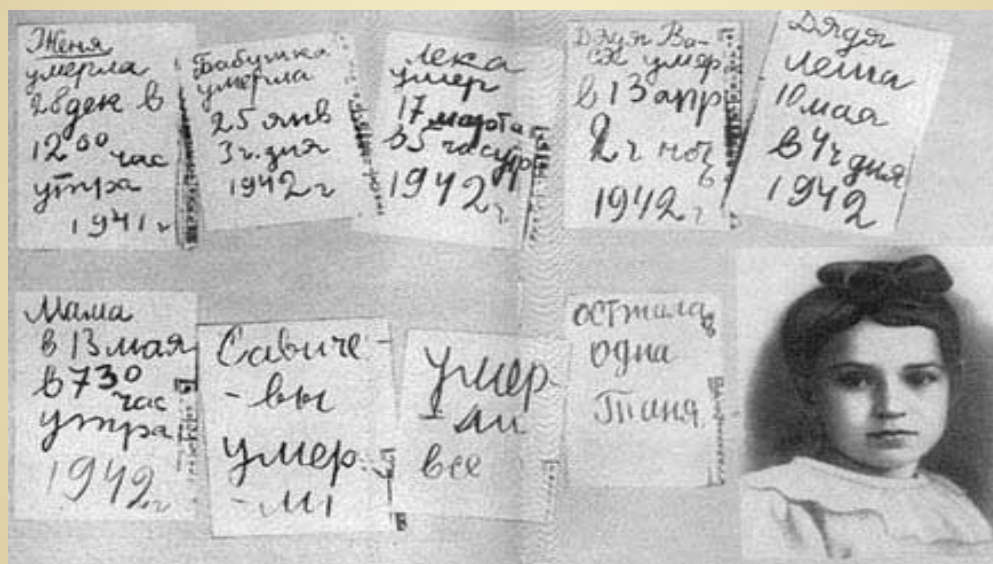 Женя
умерла
28 дек в
12 00 час
утра
1941 г
Бабушка
умерла
25 янв
3 ч. дня
1942 г
Лека
умер
17 марта
в 5 часутр
1942 г
Дядя Ва-
ся умер
в 13 апр
2 ч ночь
1942 г
Дядя
Леша
10 мая
в 4 ч дня
1942
Мама
в 13 мая
в 7 30
час
утра
1942 г
Савиче-
-вы
умер
-ли
Умер
-ли
все
Осталась
одна
Таня